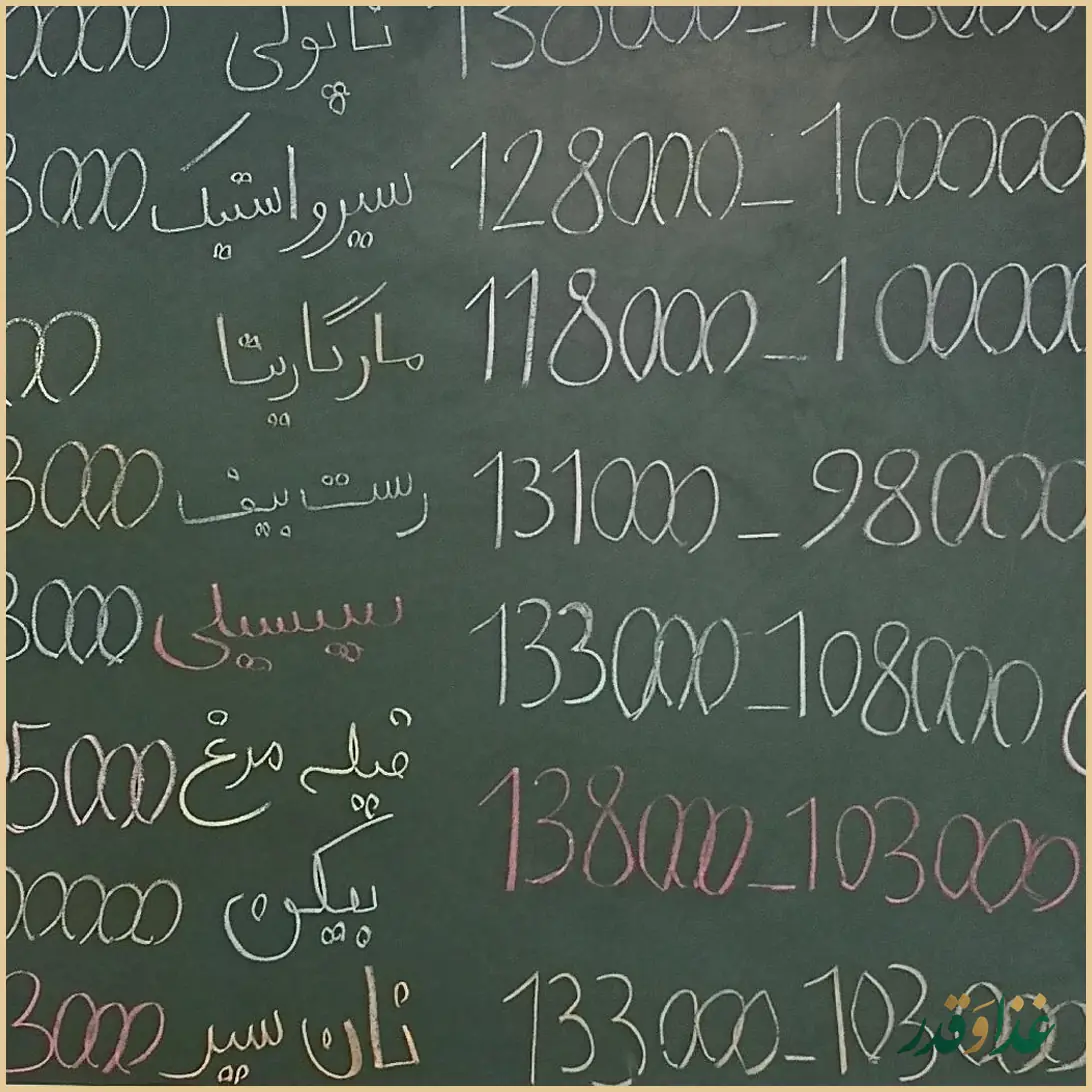 ناپولی 138000_108000
سیر و استیک 128000_100000
مارگاریتا 118000_100000
رست بیف 131000_98000
سیسیلی 133000_108000
فیله مرغ 138000_103000
بیکن
نان سیر 133000_103000
غذا و قدر